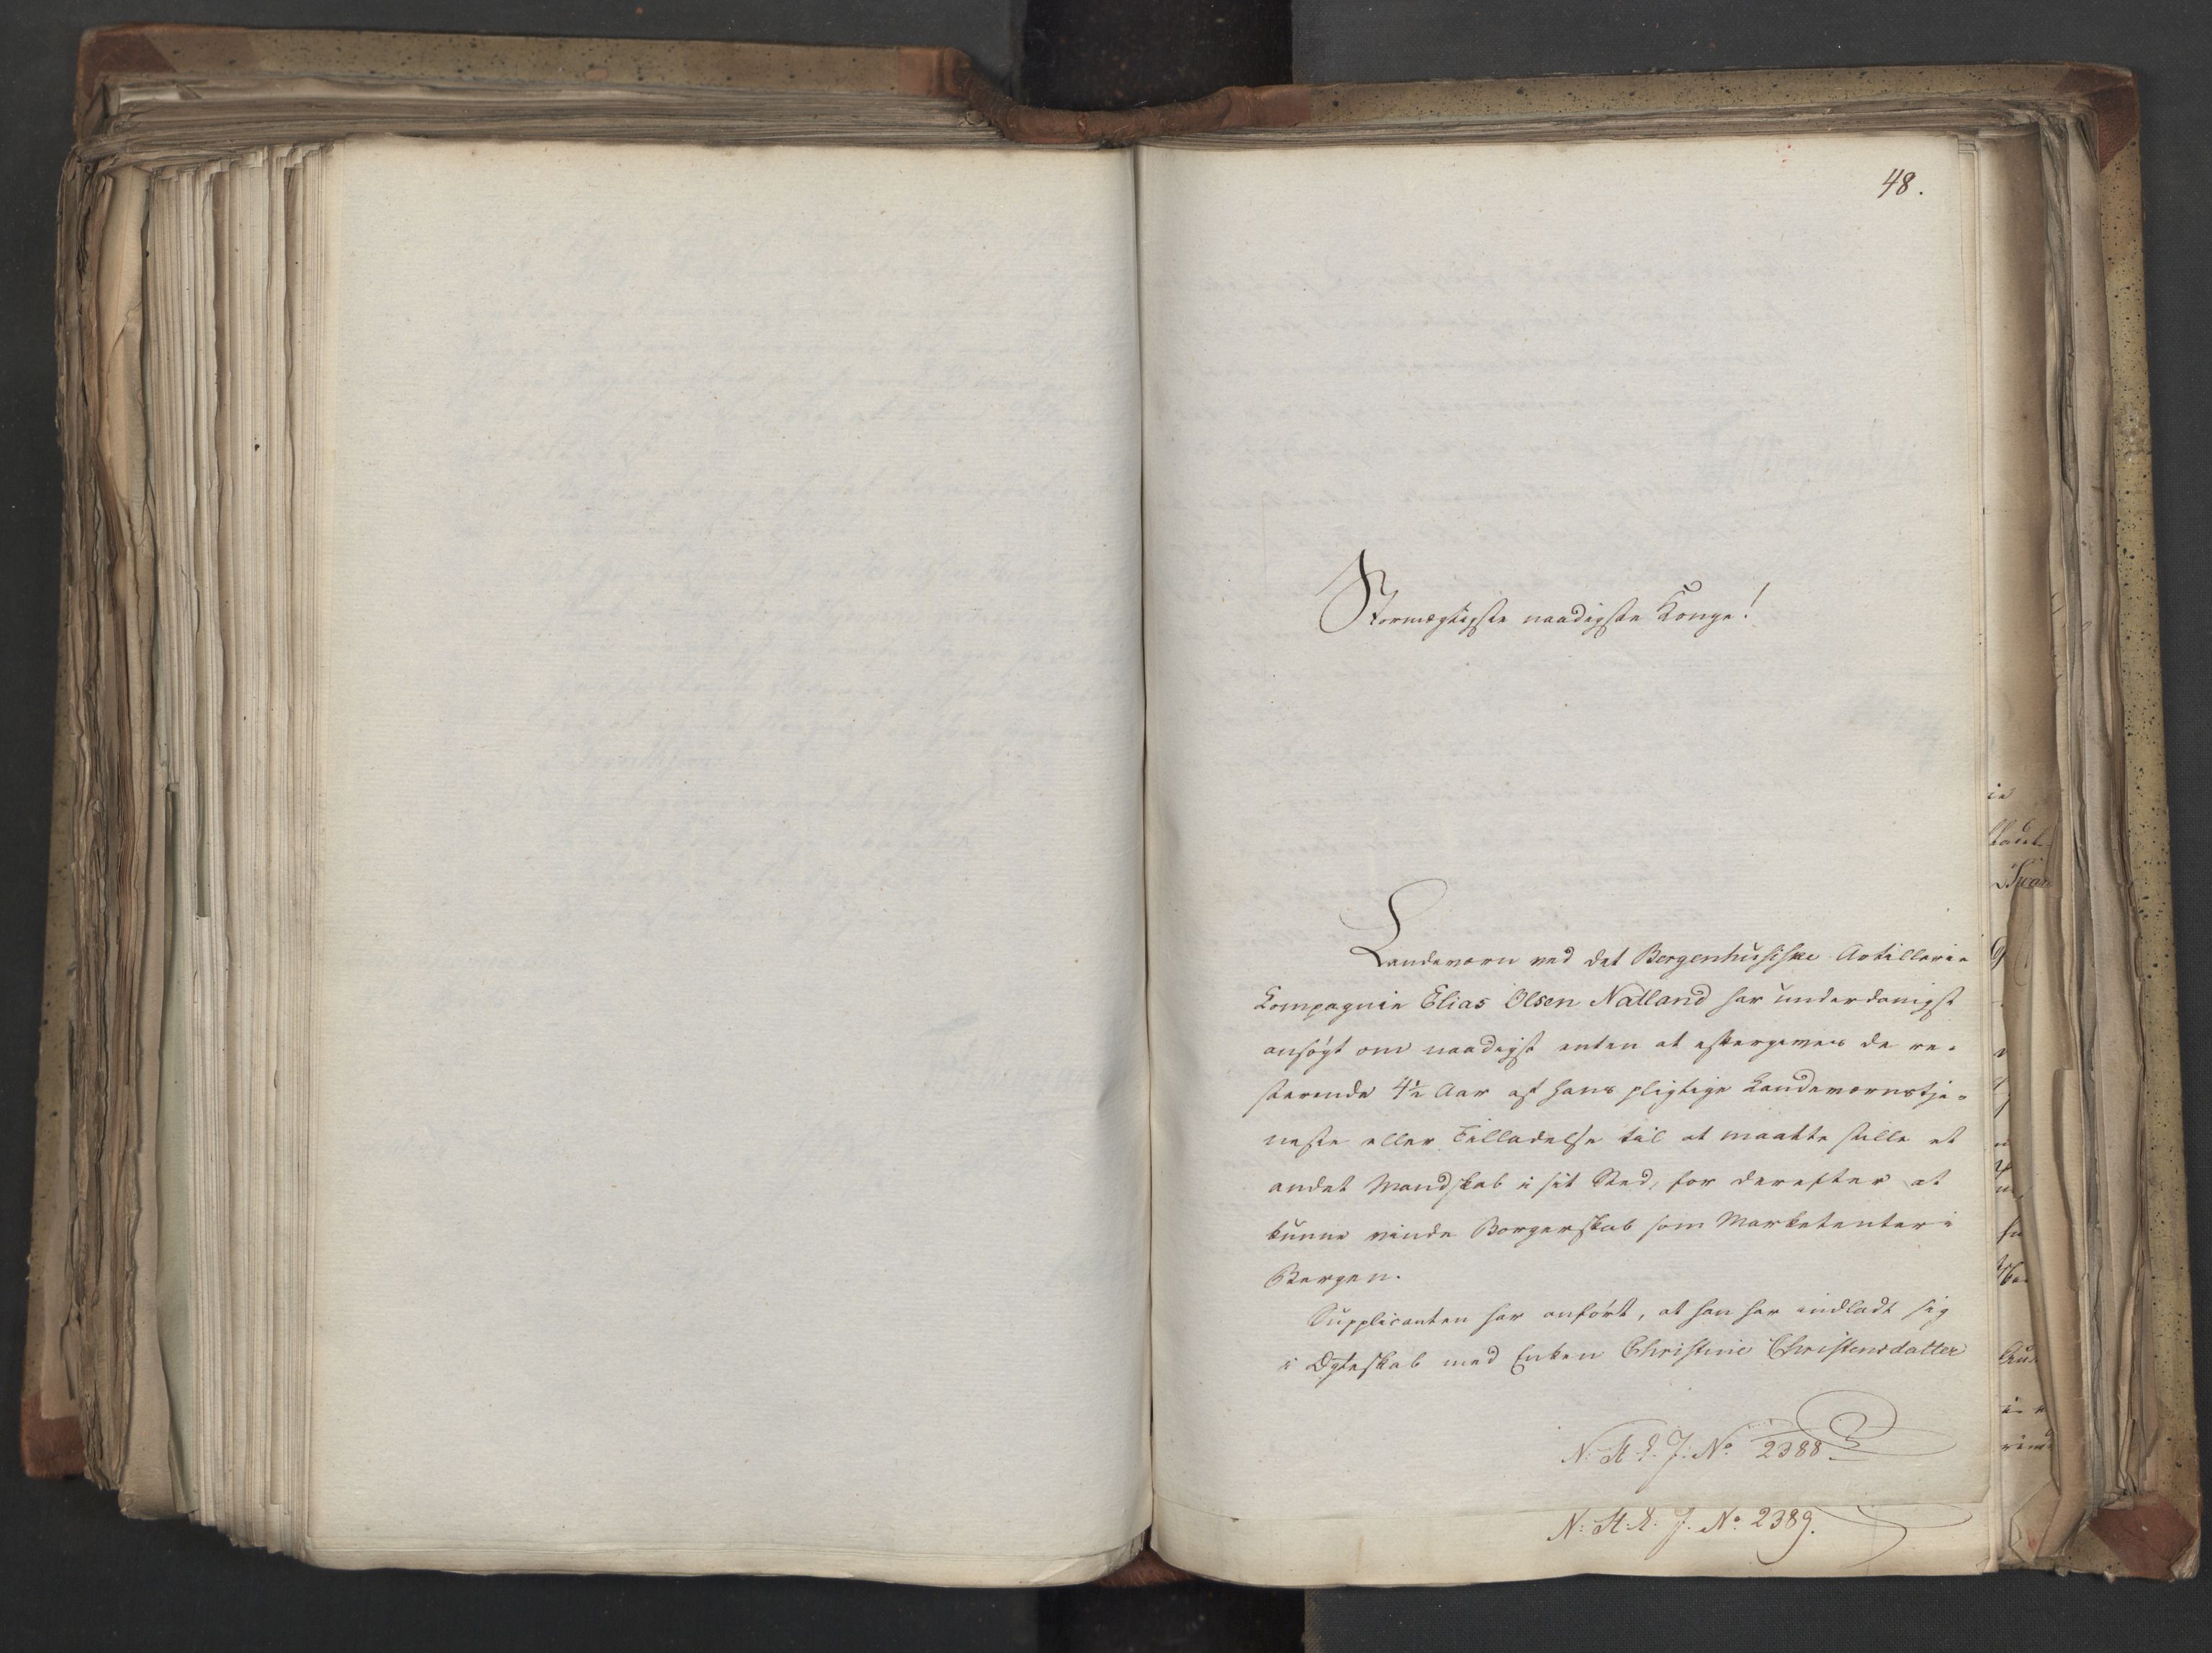 48.
Stormægtigste naadigste Konge!
Landeværn ved det Bergenhusiske Artillerie
Kompagnie Elias Olsen Natland har underdanigst
ansøgt om naadigst enten at eftergives de re-
sterende 4½ Aar af hans pligtige Landeværnstje-
neste eller Tilladelse til at maatte stille et
andet Mandskab i sit Sted, for derefter at
kunne vinde Borgerskab som Marketenter i
Bergen.
Supplicanten har anført, at han har indladt sig
i Ægteskab med Enken Christine Christensdatter
N. St. E. J. No 2388
N: St. E. J. No 2389.